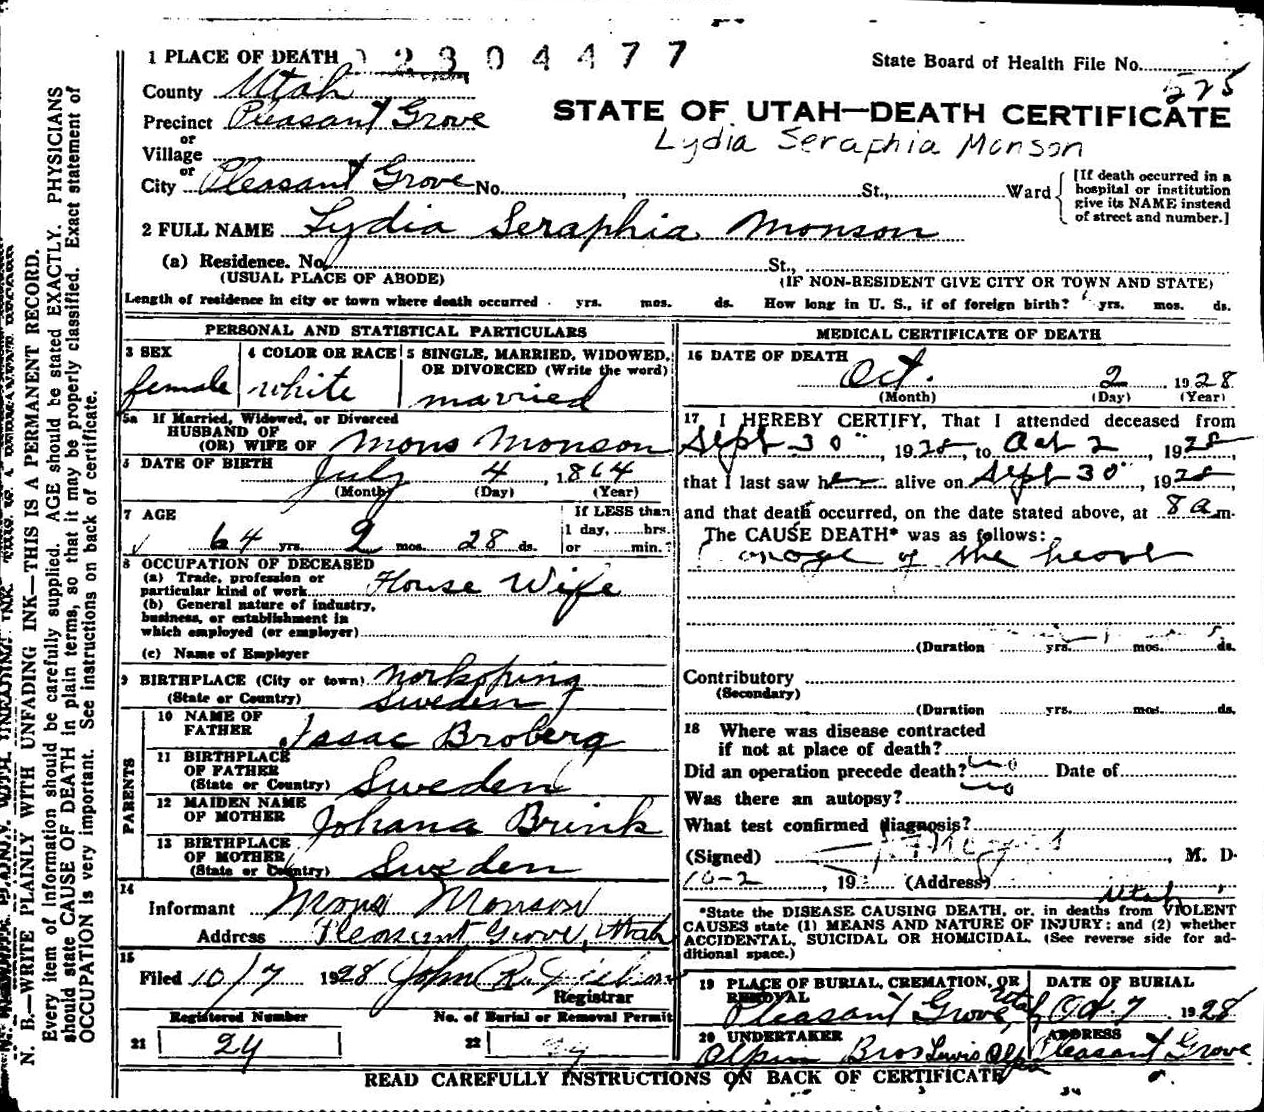 1 PLACE OF DEATH 2304477
State Board of Health File No. 525
County Utah
STATE OF UTAH—DEATH CERTIFICATE
Precinct Pleasant Grove
Lydia Seraphia Monson
or
Village
or
City Pleasant Grove No. , St., Ward
[If death occurred in a
hospital or institution
give its NAME instead
of street and number.]
2 FULL NAME Lydia Seraphia Monson
(a) Residence. No. St.,
(USUAL PLACE OF ABODE) (IF NON-RESIDENT GIVE CITY OR TOWN AND STATE)
Length of residence in city or town where death occurred yrs. mos. ds. How long in U. S., if of foreign birth? yrs. mos. ds.
PERSONAL AND STATISTICAL PARTICULARS
3 SEX 4 COLOR OR RACE 5 SINGLE, MARRIED, WIDOWED,
OR DIVORCED (Write the word)
female white married
5a If Married, Widowed, or Divorced
HUSBAND OF
(OR) WIFE OF Mons Monson
6 DATE OF BIRTH
July 4, 1864
(Month) (Day) (Year)
7 AGE If LESS than
1 day, hrs.
64 yrs. 2 mos. 28 ds. or min.?
8 OCCUPATION OF DECEASED
(a) Trade, profession or
particular kind of work House Wife
(b) General nature of industry,
business, or establishment in
which employed (or employer)
(c) Name of Employer
9 BIRTHPLACE (City or town) Norkoping
(State or Country) Sweden
PARENTS
10 NAME OF
FATHER Isaac Broberg
11 BIRTHPLACE
OF FATHER
(State or Country) Sweden
12 MAIDEN NAME
OF MOTHER Johana Brink
13 BIRTHPLACE
OF MOTHER
(State or Country) Sweden
14
Informant Mons Monson
Address Pleasant Grove, Utah
15
Filed 10/7 1928 John R.
Registrar
Registered Number No. of Burial or Removal Permit
21 24 22 24
MEDICAL CERTIFICATE OF DEATH
16 DATE OF DEATH
Oct. 2 1928
(Month) (Day) (Year)
17 I HEREBY CERTIFY, That I attended deceased from
Sept 30", 1928, to Oct 2, 1928,
that I last saw her alive on Sept 30", 1928,
and that death occurred, on the date stated above, at 8 a m.
The CAUSE DEATH* was as follows:
of the heart
(Duration yrs. mos. ds.
Contributory
(Secondary)
(Duration yrs. mos. ds.
18 Where was disease contracted
if not at place of death?
Did an operation precede death? no Date of
Was there an autopsy? no
What test confirmed diagnosis?
(Signed) , M. D.
10-2, 19 (Address) Utah
*State the DISEASE CAUSING DEATH, or, in deaths from VIOLENT
CAUSES state (1) MEANS AND NATURE OF INJURY; and (2) whether
ACCIDENTAL, SUICIDAL OR HOMICIDAL. (See reverse side for ad-
ditional space.)
19 PLACE OF BURIAL, CREMATION, OR
REMOVAL
DATE OF BURIAL
Pleasant Grove Utah Oct 7 1928
20 UNDERTAKER ADDRESS
Olpin Bros Lewis Olpin Pleasant Grove
READ CAREFULLY INSTRUCTIONS ON BACK OF CERTIFICATE
N. B.—WRITE PLAINLY WITH UNFADING INK—THIS IS A PERMANENT RECORD.
Every item of information should be carefully supplied. AGE should be stated EXACTLY. PHYSICIANS
should state CAUSE OF DEATH in plain terms, so that it may be properly classified. Exact statement of
OCCUPATION is very important. See instructions on back of certificate.